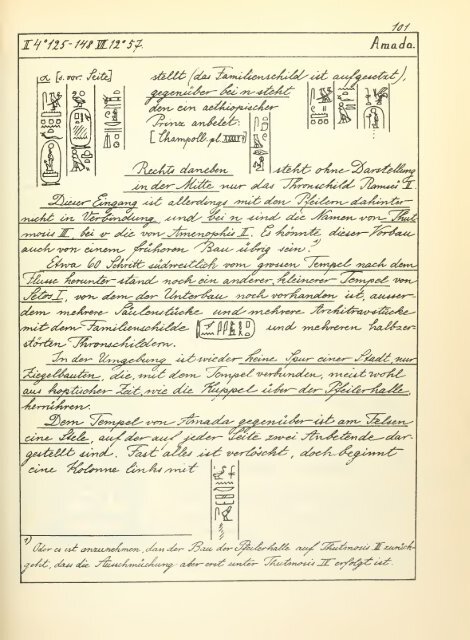 101
II 4° 125-148 VII. 12° 57. Amada.
α [s. vor. Seite] stellt (das Familienschild ist aufgesetzt),
gegenüber bei n steht
den ein aethiopischer
Prinz anbetet:
[Champoll. pl.
Rechts daneben steht ohne Darstellung
in der Mitte nur das Thronschild Ramses
Dieser Eingang ist allerdings mit den Pfeilern dahinter
nicht in Verbindung und bei n sind die Namen von Thut-
mosis III, bei v die von Amenophis II. Es könnte dieser Vorbau
auch von einem früheren Bau übrig sein.¹)
Etwa 60 Schritt südwestlich vom grossen Tempel nach dem
Flusse herunter stand noch ein anderer, kleinerer Tempel von
Setos I, von dem der Unterbau noch vorhanden ist, ausser-
dem mehrere Säulenstücke und mehrere Architravstücke
mit dem Familienschilde und mehreren halbzer-
störten Thronschildern.
In der Umgebung ist wieder keine Spur einer Stadt, nur
Ziegelbauten, die, mit dem Tempel verbunden, meist wohl
aus koptischer Zeit, wie die Kuppel über der Pfeilerhalle,
herrühren.
Dem Tempel von Amada gegenüber ist am Felsen
eine Stele, auf der auf jeder Seite zwei Anbetende dar-
gestellt sind. Fast alles ist verlöscht, doch beginnt
eine Kolonne links mit
¹) Oder es ist anzunehmen, dass der Bau der Pfeilerhalle auf Thutmosis III zurück-
geht, dass die Ausschmückung aber erst unter Thutmosis IV erfolgt ist.